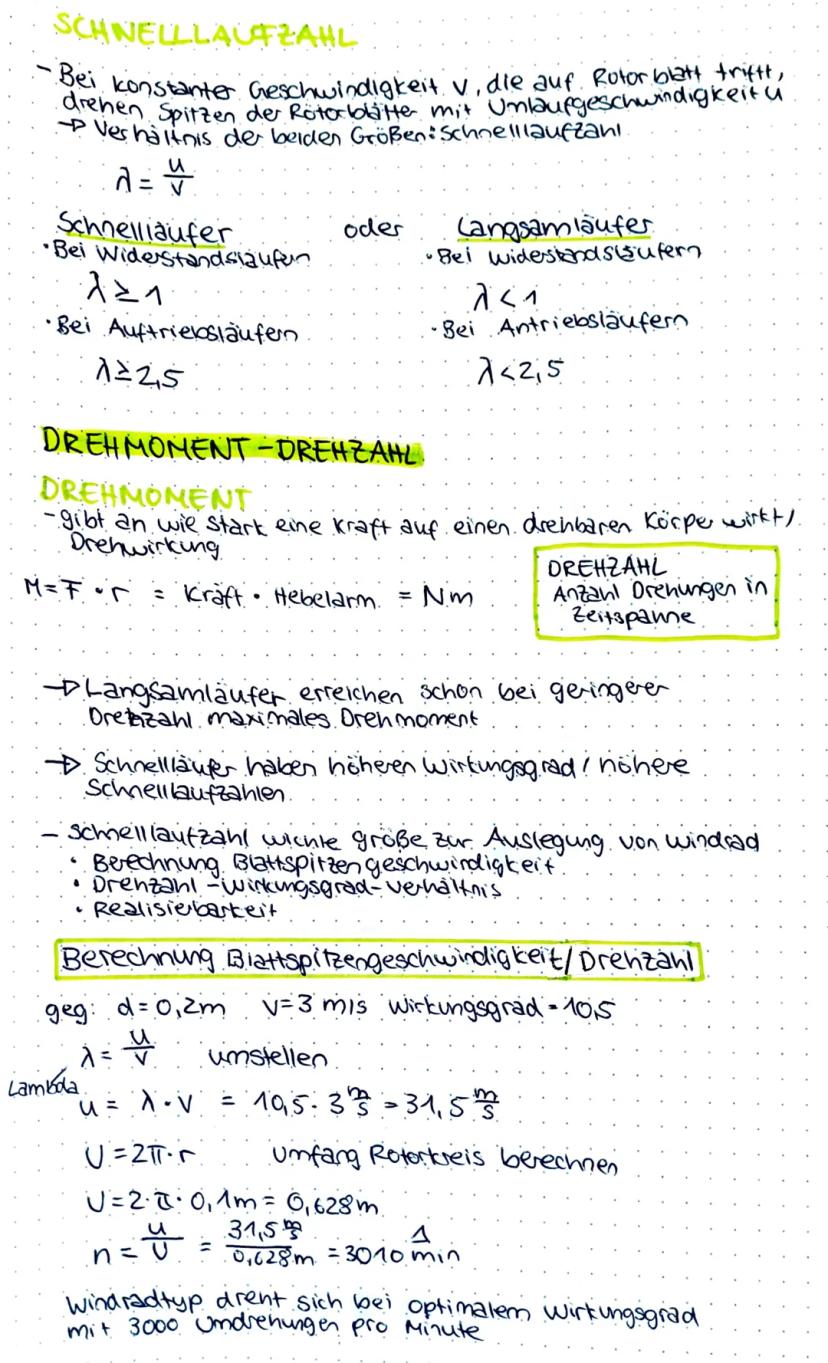 SCHNELLLAUFZAHL
- Bei konstanter Geschwindigkeit v, die auf Rotorblatt trifft,
drehen Spitzen der Rotorblätter mit Umlaufgeschwindigkeit u
→ Verhältnis der beiden Größen: Schnelllaufzahl
λ = u/v
Schnellläufer oder Langsamläufer
• Bei Widerstandsläufern • Bei Widerstandsläufern
λ ≥ 1 λ < 1
• Bei Auftriebsläufern • Bei Antriebsläufern
λ ≥ 2,5 λ < 2,5
DREHMOMENT - DREHZAHL
DREHMOMENT
- gibt an wie stark eine Kraft auf einen drehbaren Körper wirkt/
Drehwirkung
M = F • r = Kraft • Hebelarm = Nm
DREHZAHL
Anzahl Drehungen in
Zeitspanne
→ Langsamläufer erreichen schon bei geringerer
Drehzahl maximales Drehmoment
→ Schnellläufer haben höheren Wirkungsgrad / höhere
Schnelllaufzahlen
- Schnelllaufzahl wichte größe zur Auslegung von Windrad
• Berechnung Blattspitzengeschwindigkeit
• Drehzahl-Wirkungsgrad-verhältnis
• Realisierbarkeit
Berechnung Blattspitzengeschwindigkeit/Drehzahl
geg: d = 0,2m v = 3 m/s Wirkungsgrad = 10,5
λ = u/v umstellen
Lambda
u = λ • v = 10,5 • 3 m/s = 31,5 m/s
U = 2π • r Umfang Rotorkreis berechnen
U = 2 • π • 0,1m = 0,628m
n = u/U = 31,5 m/s / 0,628m = 3010 1/min
Windradtyp dreht sich bei optimalem Wirkungsgrad
mit 3000 Umdrehungen pro Minute